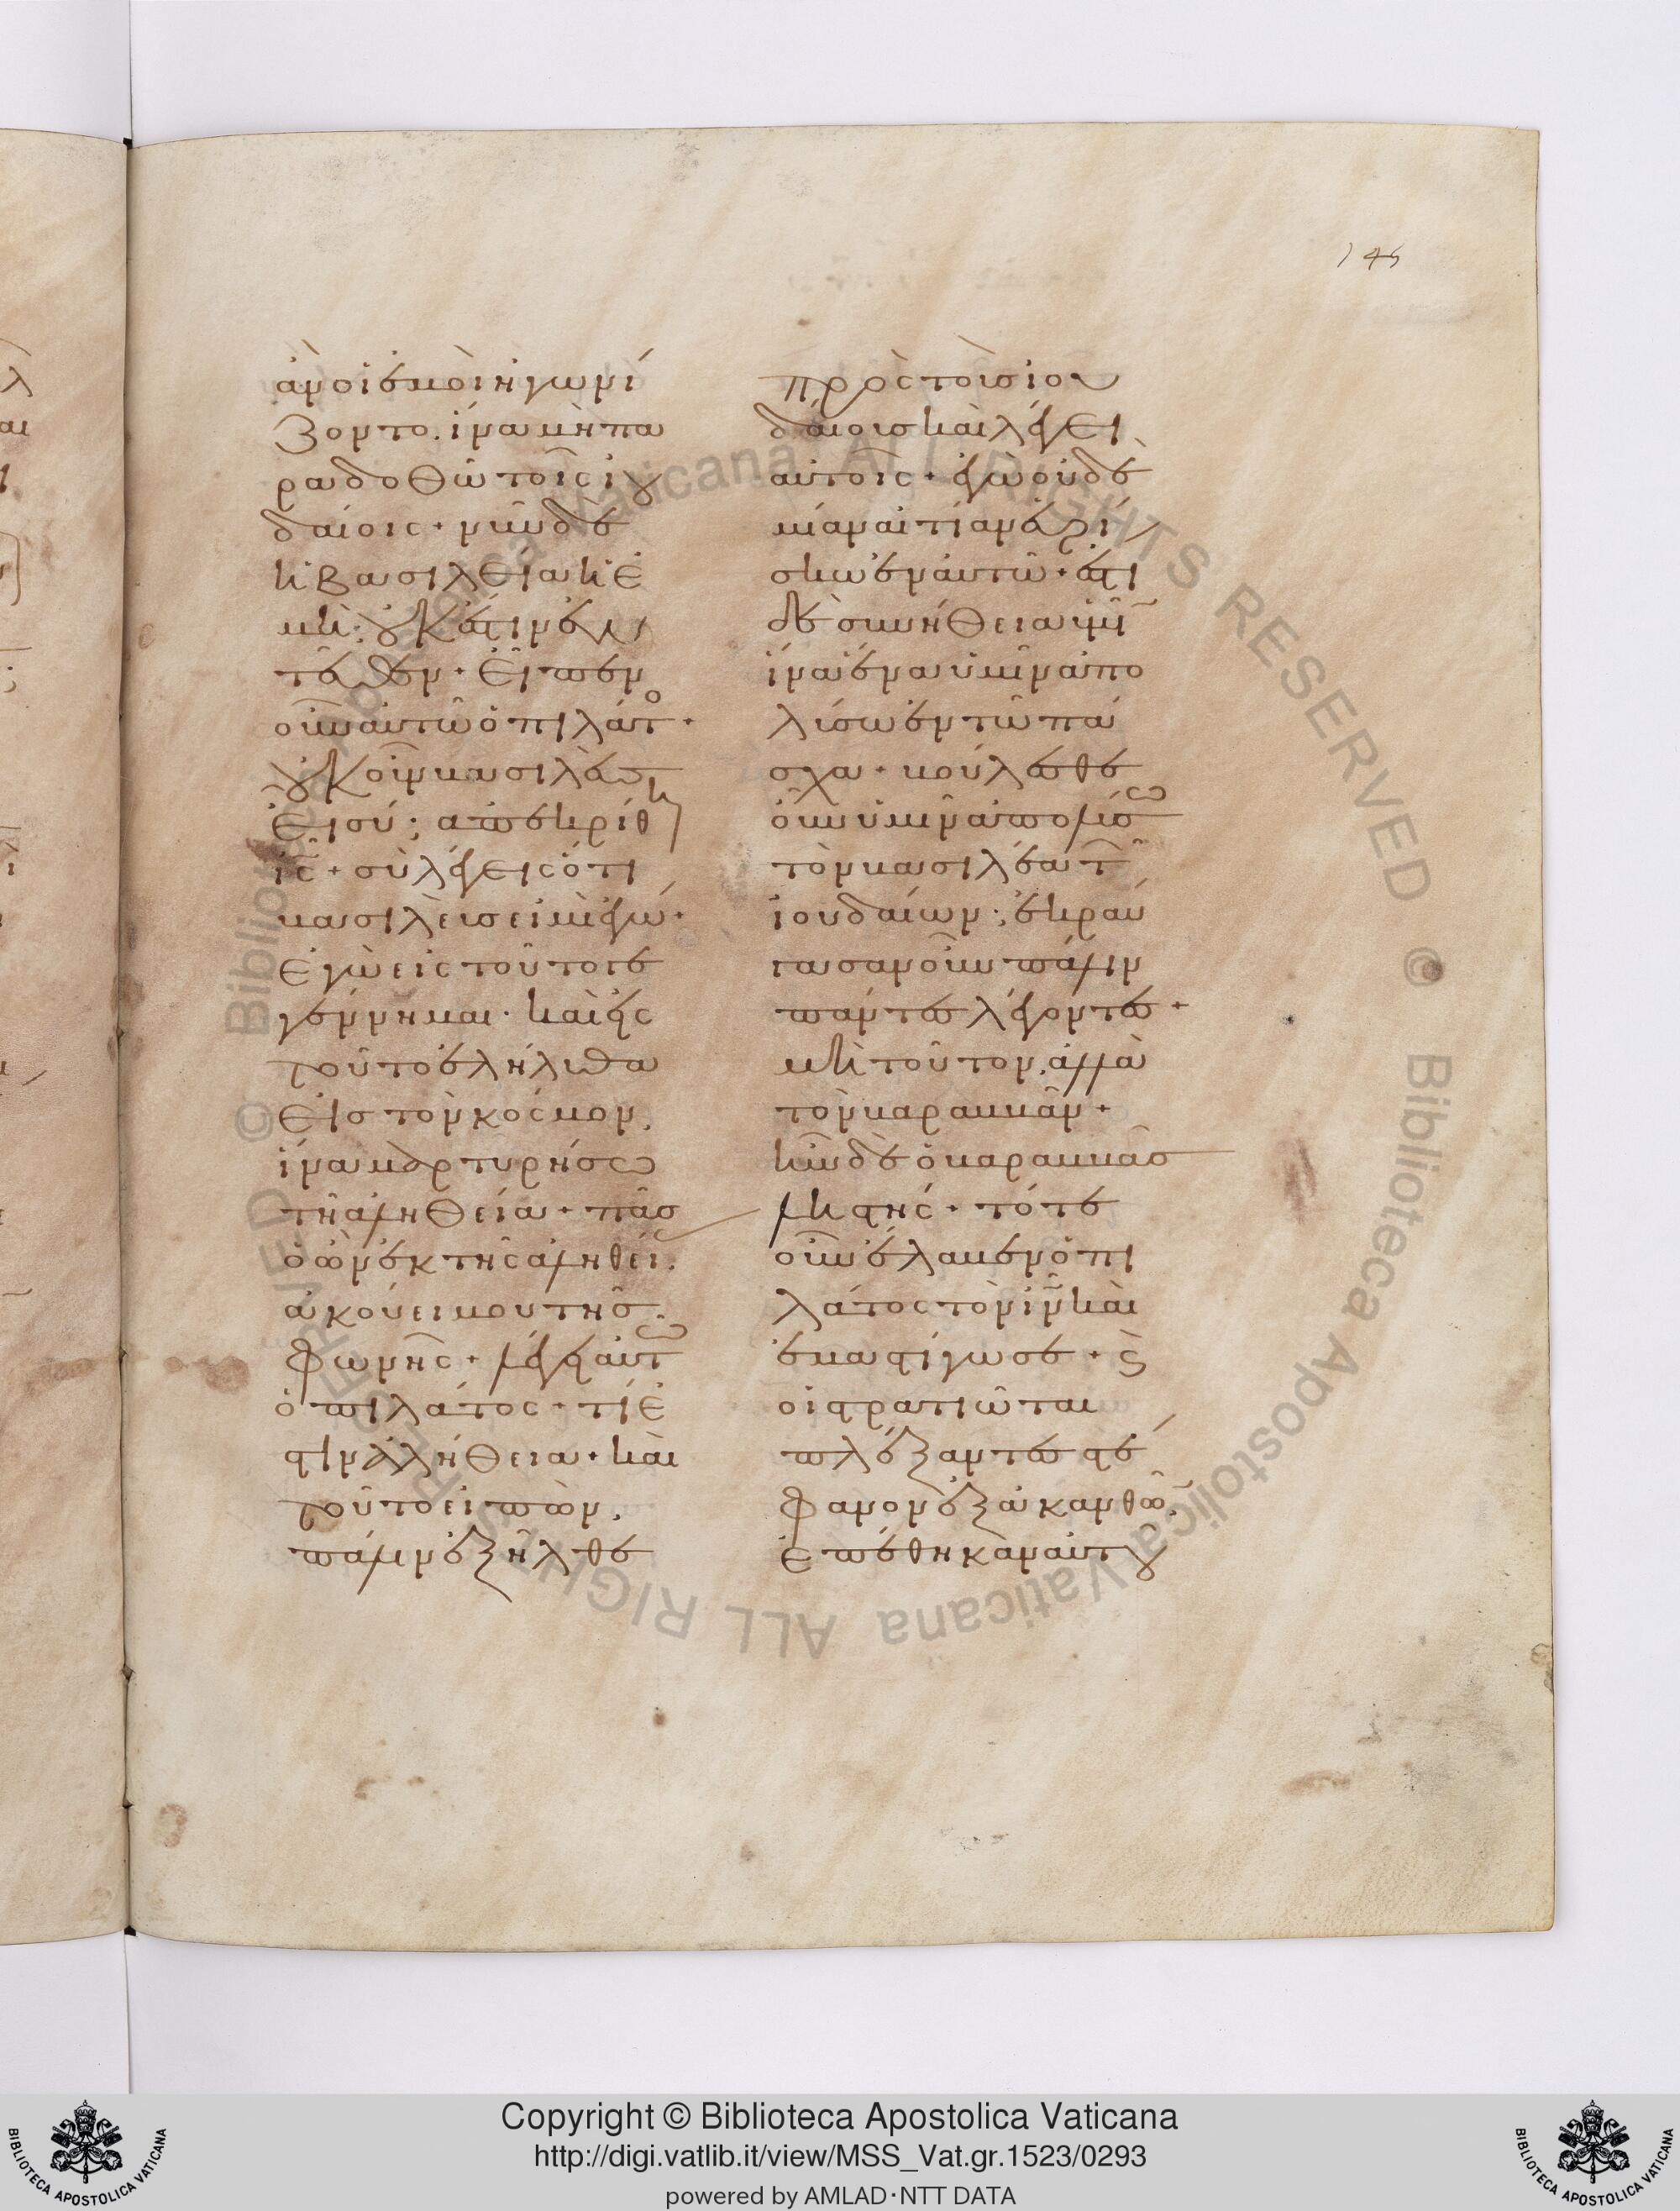 145
ἂν οἱ ἐμοὶ ἠγωνί
ζοντο. ἵνα μὴ πα
ραδοθῶ τοῖς ἰου
δαίοις· νῦν δὲ
ἡ βασιλεία ἡ ἐ
μὴ· οὐκ ἔστιν ἐν
τεῦθεν· εἶπεν
οὖν αὐτῶ ὁ πιλάτο·
οὐκοῦν βασιλεὺς
εἶ σύ; ἀπεκρίθη
ις· σὺ λέγεις ὅτι
βασιλεὺς εἰμὶ ἐγώ·
ἐγὼ εἰς τοῦτο γε
γέννημαι· καὶ εἰς
τοῦτο ἐλήλυθα
εἰς τὸν κόσμον.
ἵνα μαρτυρήσω
τῆ ἀληθεία· πᾶς
ὁ ὢν ἐκ τῆς ἀληθεί.
ἀκούει μου τῆς
φωνῆς· λέγει αὐτῶ
ὁ πιλάτος· τί ἐ
στιν ἀλήθεια· καὶ
τοῦτο εἰπὼν.
πάλιν ἐξῆλθε
πρὸς τοὺς ἰου
δαίους καὶ λέγει
αὐτοῖς· ἐγὼ οὐδε
μίαν αἰτίαν εὑρί
σκω ἐν αὐτῶ· ἔστι
δὲ συνήθεια ὑμῖ
ἵνα ἕνα ὑμῖν ἀπο
λύσω ἐν τῶ πά
σχα· βούλεσθε
οὖν ὑμῖν ἀπολύσω
τὸν βασιλέα τῶ
ἰουδαίων; ἐκραύ
γασαν οὖν πάλιν
πάντες λέγοντες·
μὴ τοῦτον. ἀλλὰ
τὸν βαραββᾶν·
ἦν δὲ ὁ βαραββᾶς
ληστής· τότε
οὖν ἔλαβεν ὁ πι
λάτος τὸν ιν καὶ
ἐμαστίγωσε· ϗ
οἱ στρατιῶται
πλέξαντες στέ
φανον ἐξ ἀκανθῶ.
ἐπέθηκαν αὐτοῦ
Copyright © Biblioteca Apostolica Vaticana
http://digi.vatlib.it/view/MSS_Vat.gr.1523/0293
powered by AMLAD·NTT DATA